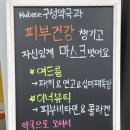 Hubase 구성약국과
피부건강 챙기고
자신있게 마스크 벗어요
★ 여드름
→ 패치 & 연고 & 심미패독산
★ 이너뷰티
→ 피부비타민 & 콜라겐
약국으로 오세요